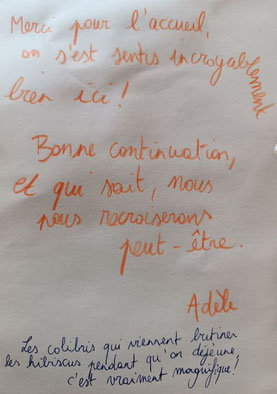 Merci pour l'accueil,
on s'est sentis incroyablement
bien ici !
Bonne continuation,
et qui sait, nous
nous recroiserons
peut-être.
Adèle
Les colibris qui viennent butiner
les hibiscus pendant qu'on déjeune,
c'est vraiment magnifique !